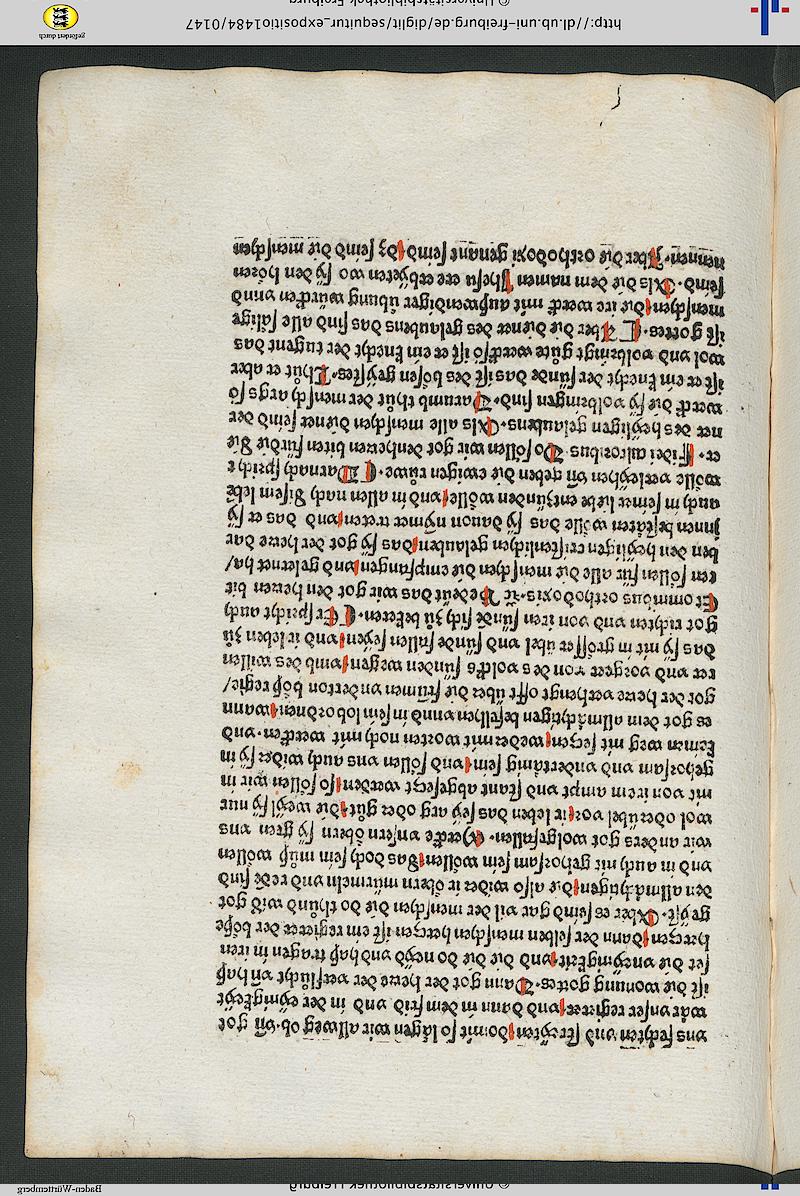 http://dl.ub.uni-freiburg.de/diglit/sequitur_expositio1484/0147
© Universitätsbibliothek Freiburg
gefördert durch
Baden-Württemberg
vns fechten vnd streyten|domit so sigen wir allweg ob·vñ got
wår vnser regierrer|vnd dann in dem frid vnd in der eynigkeyt
ist die wonung gottes·Dann got der herre der verflůcht vñ haß
set die vneynigkeit|vnd die die do neyd vnd haß tragen in iren
hertzen|dann der selben menschen hertzen ist ein regierer der böße
geyst·Aber es seind gar vil der menschen die do thůnd wid̾ got
den allmåchtigen|die also wider ir öbern murmeln vnd rede sind
vnd in auch nit gehorsam sein wöllen|das doch sein můß wöllen
wir anders got wolgefallen· vnsern öbern sy seyen vns
wol oder übel vor|ir leben das sey arg oder gůt|die weyl sy nur
nit von irem ampt vnd stant abgesetzt werden|so söllen wir in
gehorsam vnd vndertånig sein|vnd söllen vns auch wider sy in
keinen weg nit setzen|weder mit worten noch mit wercken·vnd
es got dem allmåchtigen befelhen vnnd in sein lob ordnen|wann
got der herre verhengt offt über die frummen vnderton böß regie/
rer vnd vorgeer von des volcks sünden wegen|vmb des willen
das sy nit in grosser übel vnd sünde fallen seyen|vnd ir leben zů
got richten vnd von iren sünde sich zů bekeren·Er spricht auch
Et omnibus orthodoxis·rc̃ Bedeüt das wir got den herren bit
ten söllen für alle die menschen die empfangen vnd gelernet ha/
ben den heyligen cristenlichen gelauben|das sy got der herre dar
jnnen beståten wölle das sy dauon nymer treten|vnd das er sy
auch in seiner liebe entzünden wölle|vnd in allen nach disem lebē
wölle verleyhen vñ geben die ewigen růwe·Darnach spricht
er·Fidei cultoribus Do söllen wir got den herren biten für die die
ner des heyligen gelaubens·Als alle menschen diener seind der
werck die sy volbringen sind·Darumb thůt der mensch args so
ist er ein knecht der sünde das ist des bösen geystes·Thůt er aber
wol vnd volbringt gůte werck so ist er ein knecht der tugent das
ist gottes·Aber die diener des gelaubens das sind alle sålige
menschen|die ire werck mit außwendiger übung würcken vnnd
seind·Als die dem namen Jhesu ere erbyeten wo sy den hören
nennen·Aber die orthodoxi genant seind|dz seind die menschen